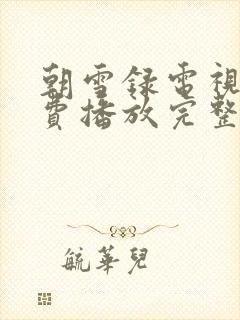 朝雪錄電視
費播放完整
毓華兒